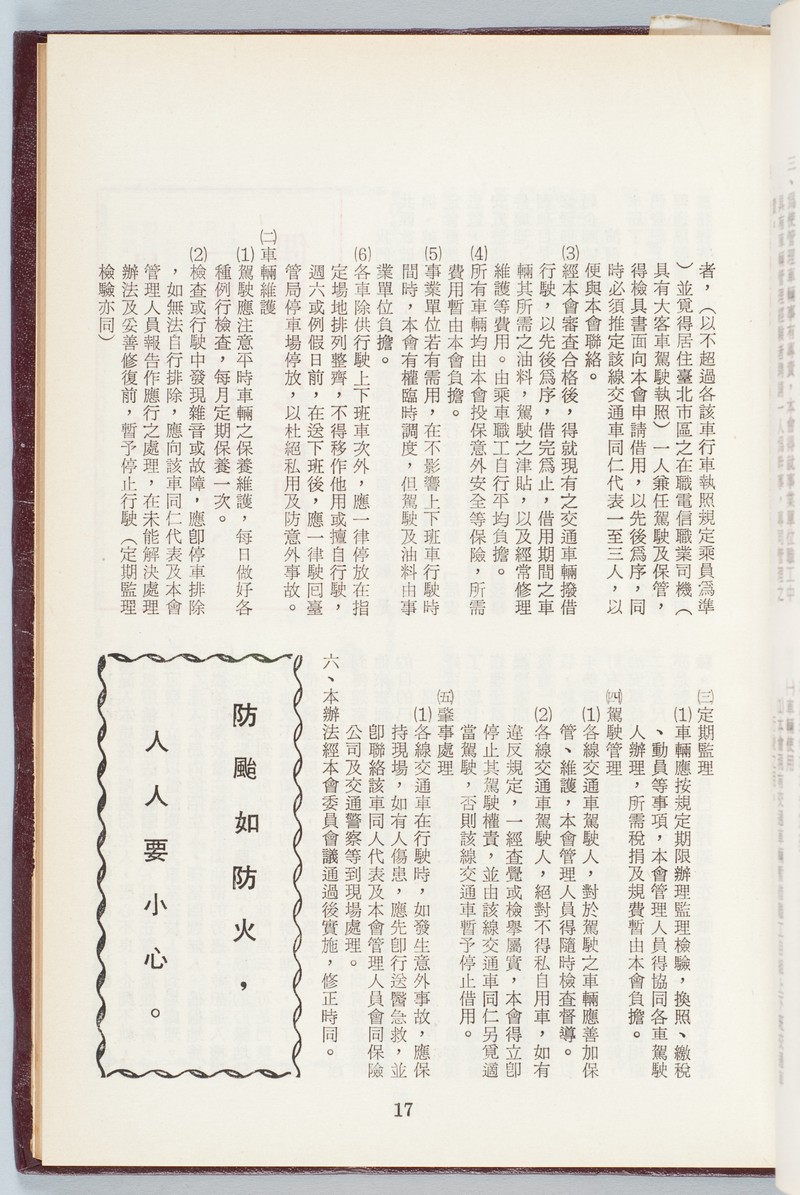 者，（以不超過各該車行車執照規定乘員爲準
）並覓得居住臺北市區之在職電信職業司機（
具有大客車駕駛執照）一人兼任駕駛及保管，
得檢具書面向本會申請借用，以先後爲序，同
時必須推定該線交通車同仁代表一至三人，以
便與本會聯絡。
⑶經本會審查合格後，得就現有之交通車輛撥借
行駛，以先後爲序，借完爲止，借用期間之車
輛其所需之油料，駕駛之津貼，以及經常修理
維護等費用。由乘車職工自行平均負擔。
⑷所有車輛均由本會投保意外安全等保險，所需
費用暫由本會負擔。
⑸事業單位若有需用，在不影響上下班車行駛時
間時，本會有權臨時調度，但駕駛及油料由事
業單位負擔。
⑹各車除供行駛上下班車次外，應一律停放在指
定場地排列整齊，不得移作他用或擅自行駛，
週六或例假日前，在送下班後，應一律駛回臺
管局停車場停放，以杜絕私用及防意外事故。
㈡車輛維護
⑴駕駛應注意平時車輛之保養維護，每日做好各
種例行檢查，每月定期保養一次。
⑵檢查或行駛中發現雜音或故障，應卽停車排除
，如無法自行排除，應向該車同仁代表及本會
管理人員報告作應行之處理，在未能解決處理
辦法及妥善修復前，暫予停止行駛（定期監理
檢驗亦同）
㈢定期監理
⑴車輛應按規定期限辦理監理檢驗，換照、繳稅
、動員等事項，本會管理人員得協同各車駕駛
人辦理，所需稅捐及規費暫由本會負擔。
㈣駕駛管理
⑴各線交通車駕駛人，對於駕駛之車輛應善加保
管、維護，本會管理人員得隨時檢查督導。
⑵各線交通車駕駛人，絕對不得私自用車，如有
違反規定，一經查覺或檢舉屬實，本會得立卽
停止其駕駛權責，並由該線交通車同仁另覓適
當駕駛，否則該線交通車暫予停止借用。
㈤肇事處理
⑴各線交通車在行駛時，如發生意外事故，應保
持現場，如有人傷患，應先卽行送醫急救，並
卽聯絡該車同人代表及本會管理人員會同保險
公司及交通警察等到現場處理。
六、本辦法經本會委員會議通過後實施，修正時同。
防颱如防火，
人人要小心。
17